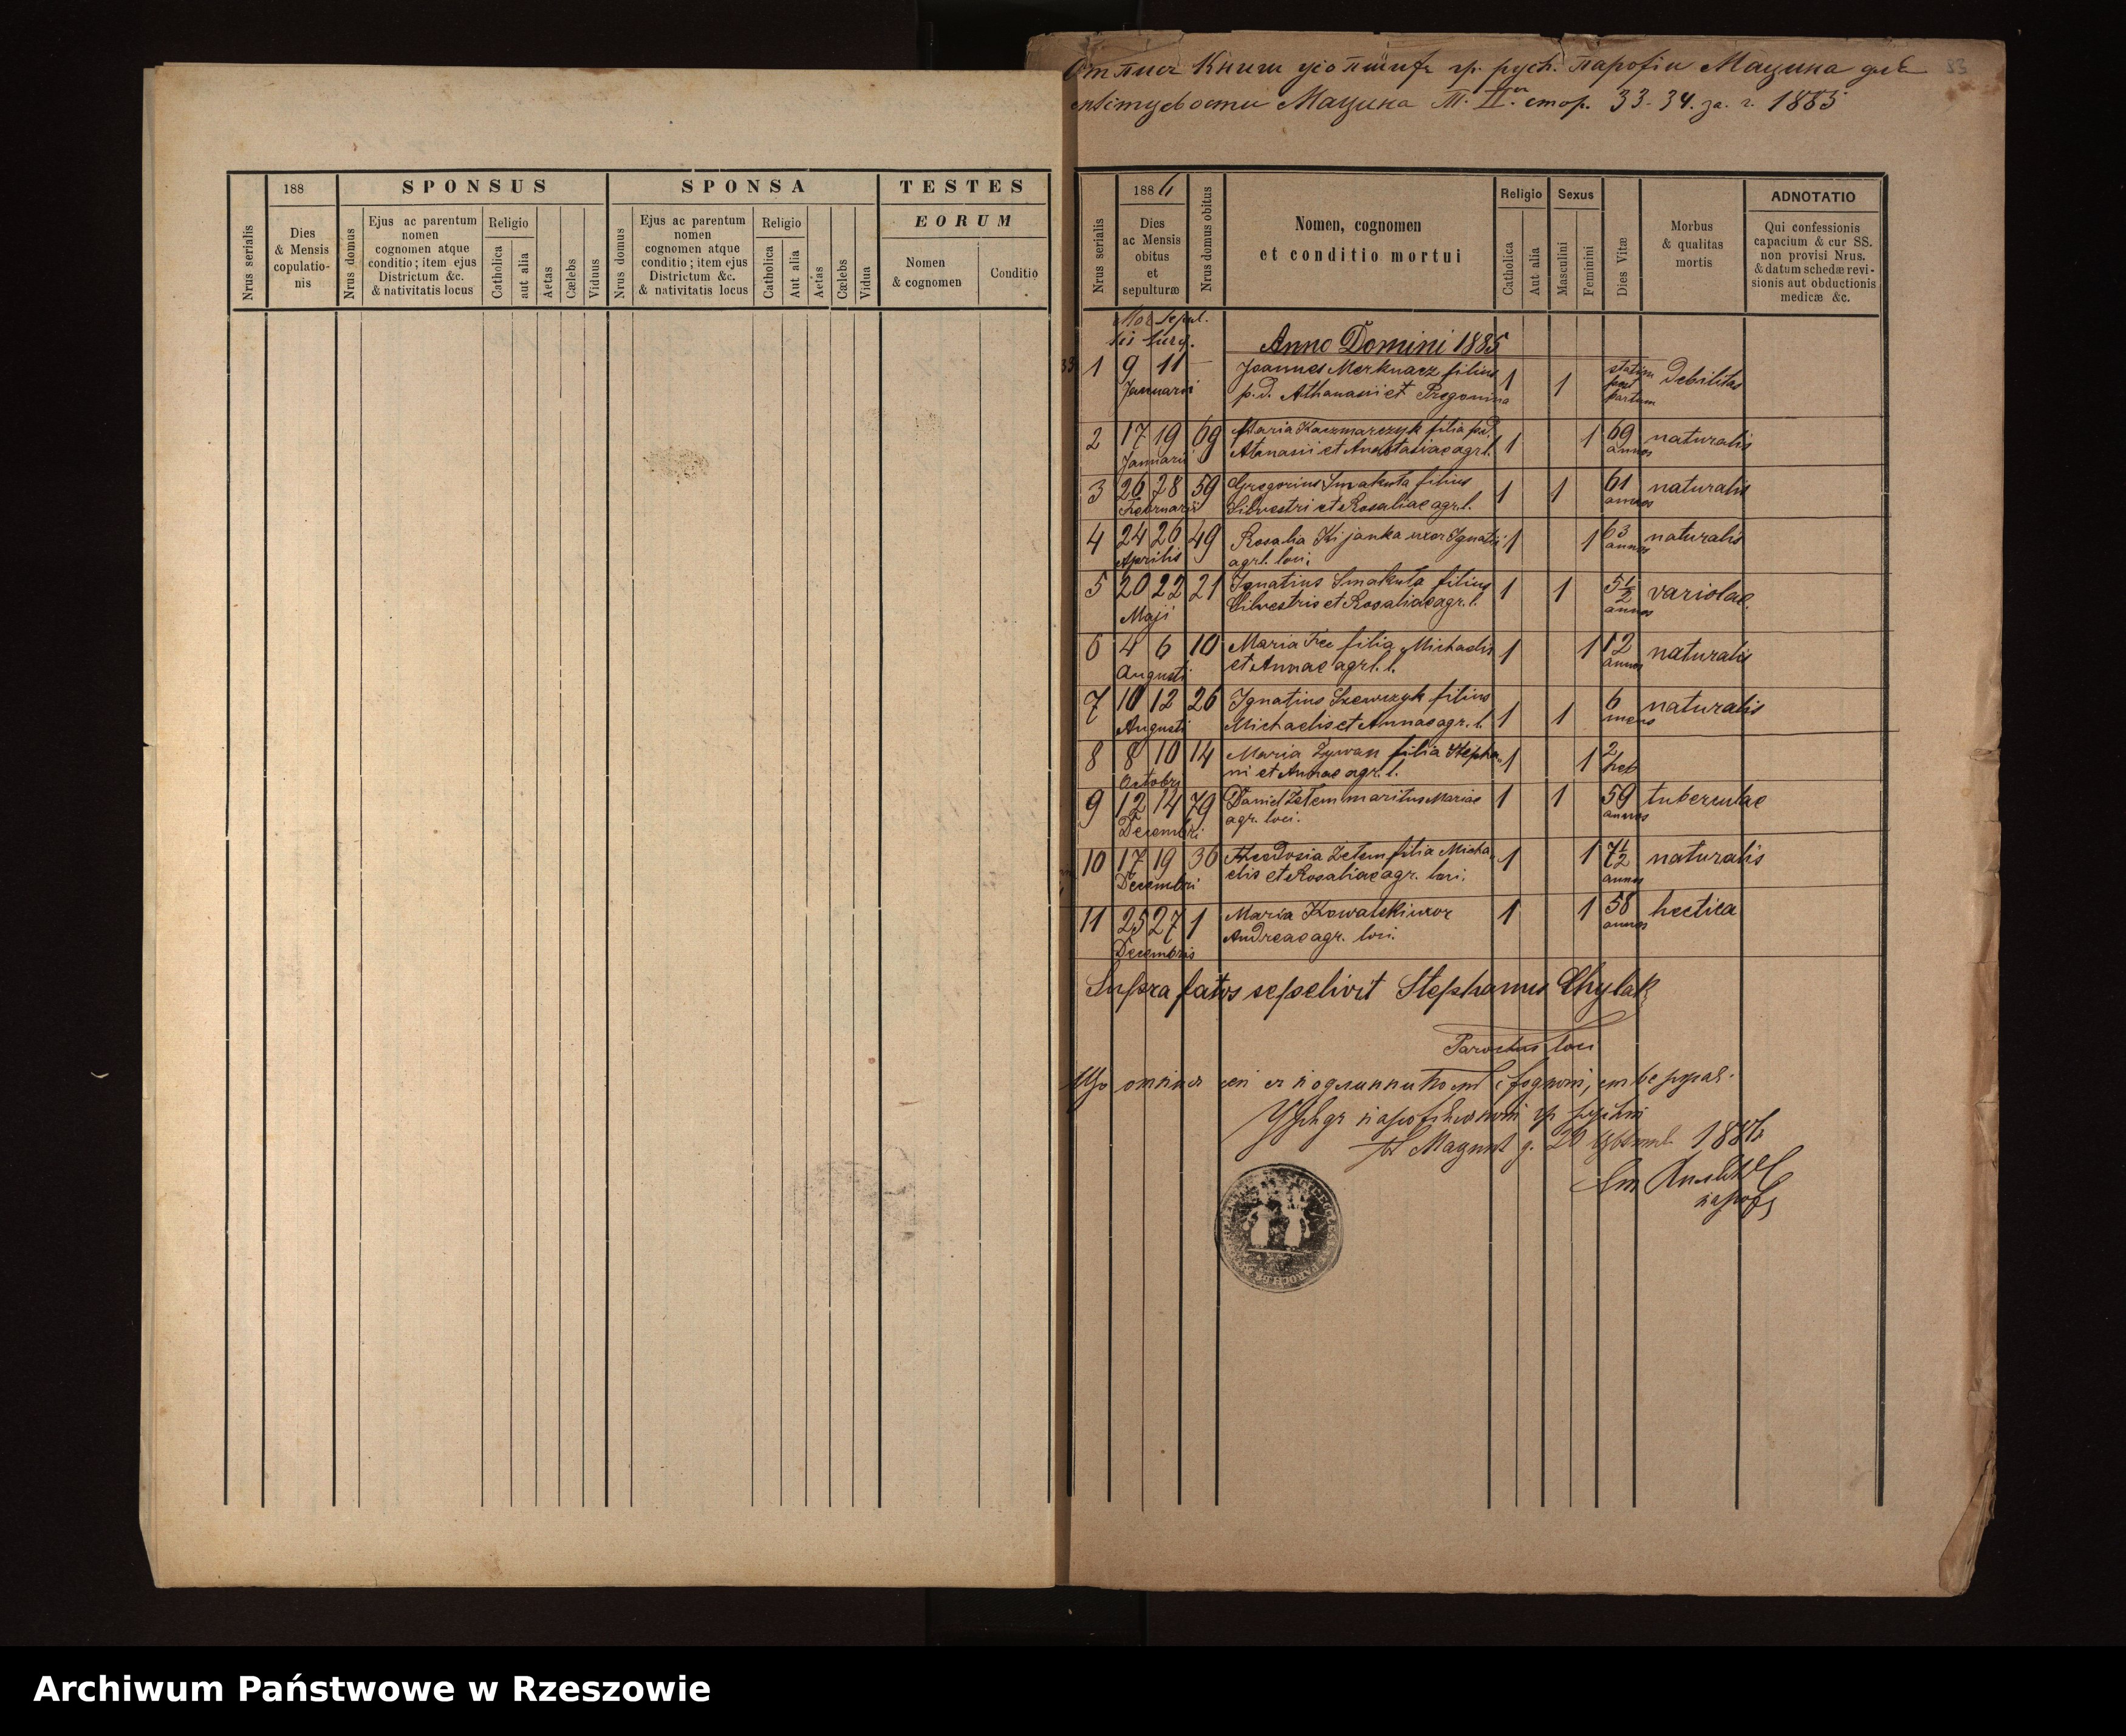 33
188
SPONSUS
SPONSA
TESTES
EORUM
Nrus serialis
Dies
& Mensis
copulatio-
nis
Nrus domus
Ejus ac parentum
nomen
cognomen atque
conditio; item ejus
Districtum &c.
& nativitatis locus
Religio
Catholica
aut alia
Aetas
Cælebs
Viduus
Nrus domus
Ejus ac parentum
nomen
cognomen atque
conditio; item ejus
Districtum &c.
& nativitatis locus
Religio
Catholica
Aut alia
Aetas
Cælebs
Vidua
Nomen
& cognomen
Conditio
книги гр. руск. парофіи Мацина для
Мацина Т. II. стор. 33. 34. за. г. 1885
Nrus serialis
1886
Dies
ac Mensis
obitus
et
sepulturæ
Nrus domus obitus
Nomen, cognomen
et conditio mortui
Religio
Catholica
Aut alia
Sexus
Masculini
Feminini
Dies Vitæ
Morbus
& qualitas
mortis
ADNOTATIO
Qui confessionis
capacium & cur SS.
non provisi Nrus.
& datum schedæ revi-
sionis aut obductionis
medicæ &c.
Anno Domini 1885
1 9 11 — Joannes Merknacz filius 1 1 statim post partum Debilitas
Januarii p. d. Athanasii et
2 17 19 69 Maria Kaczmarczyk filia p.d. 1 1 69 annos naturalis
Januarii Atanasii et Anastasiae agr. l.
3 26 28 59 Gregorius Smakuła filius 1 1 61 annos naturalis
Februarii Silvestri et Rosaliae agr. l.
4 24 26 49 Rosalia Kijanka uxor Ignatii 1 1 63 annos naturalis
Aprilis agr. loci
5 20 22 21 Ignatius Smakuła filius 1 1 5½ annos variolae
Maji Silvestris et Rosaliae agr. l.
6 4 6 10 Maria Fec filia Michaelis 1 1 12 annos naturalis
Augusti et Annae agr. l.
7 10 12 26 Ignatius Szewczyk filius 1 1 6 mens naturalis
Augusti Michaelis et Annae agr. l.
8 8 10 14 Maria Zywan filia Stepha- 1 1 2 heb
Octobri ni et Annae agr. l.
9 12 14 79 Daniel Zelem maritus Mariae 1 1 59 annos tuberculae
Decembri agr. loci.
10 17 19 36 Theodosia Zelem filia Micha- 1 1 7½ annos naturalis
Decembri elis et Rosaliae agr. loci.
11 25 27 1 Maria Kowalski uxor 1 1 58 annos hectica
Decembris Andreae agr. loci.
Supra fatos sepelivit Stephanus Chylak
Parochus loci
1886